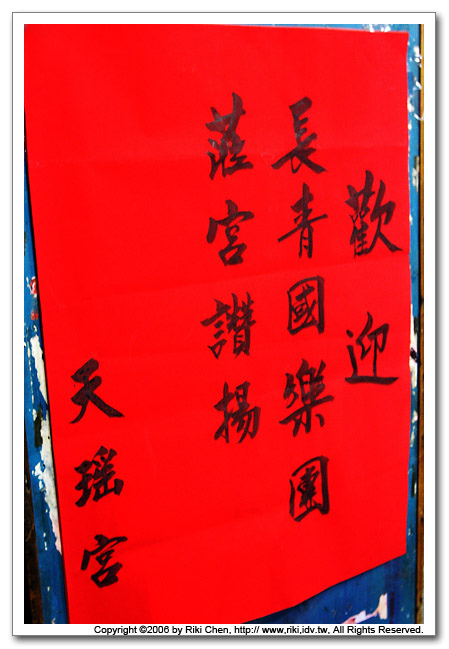 歡迎
長青國樂團
蒞宮讚揚
天瑤宮
Copyright ©2006 by Riki Chen, http:// www.riki.idv.tw, All Rights Reserved.